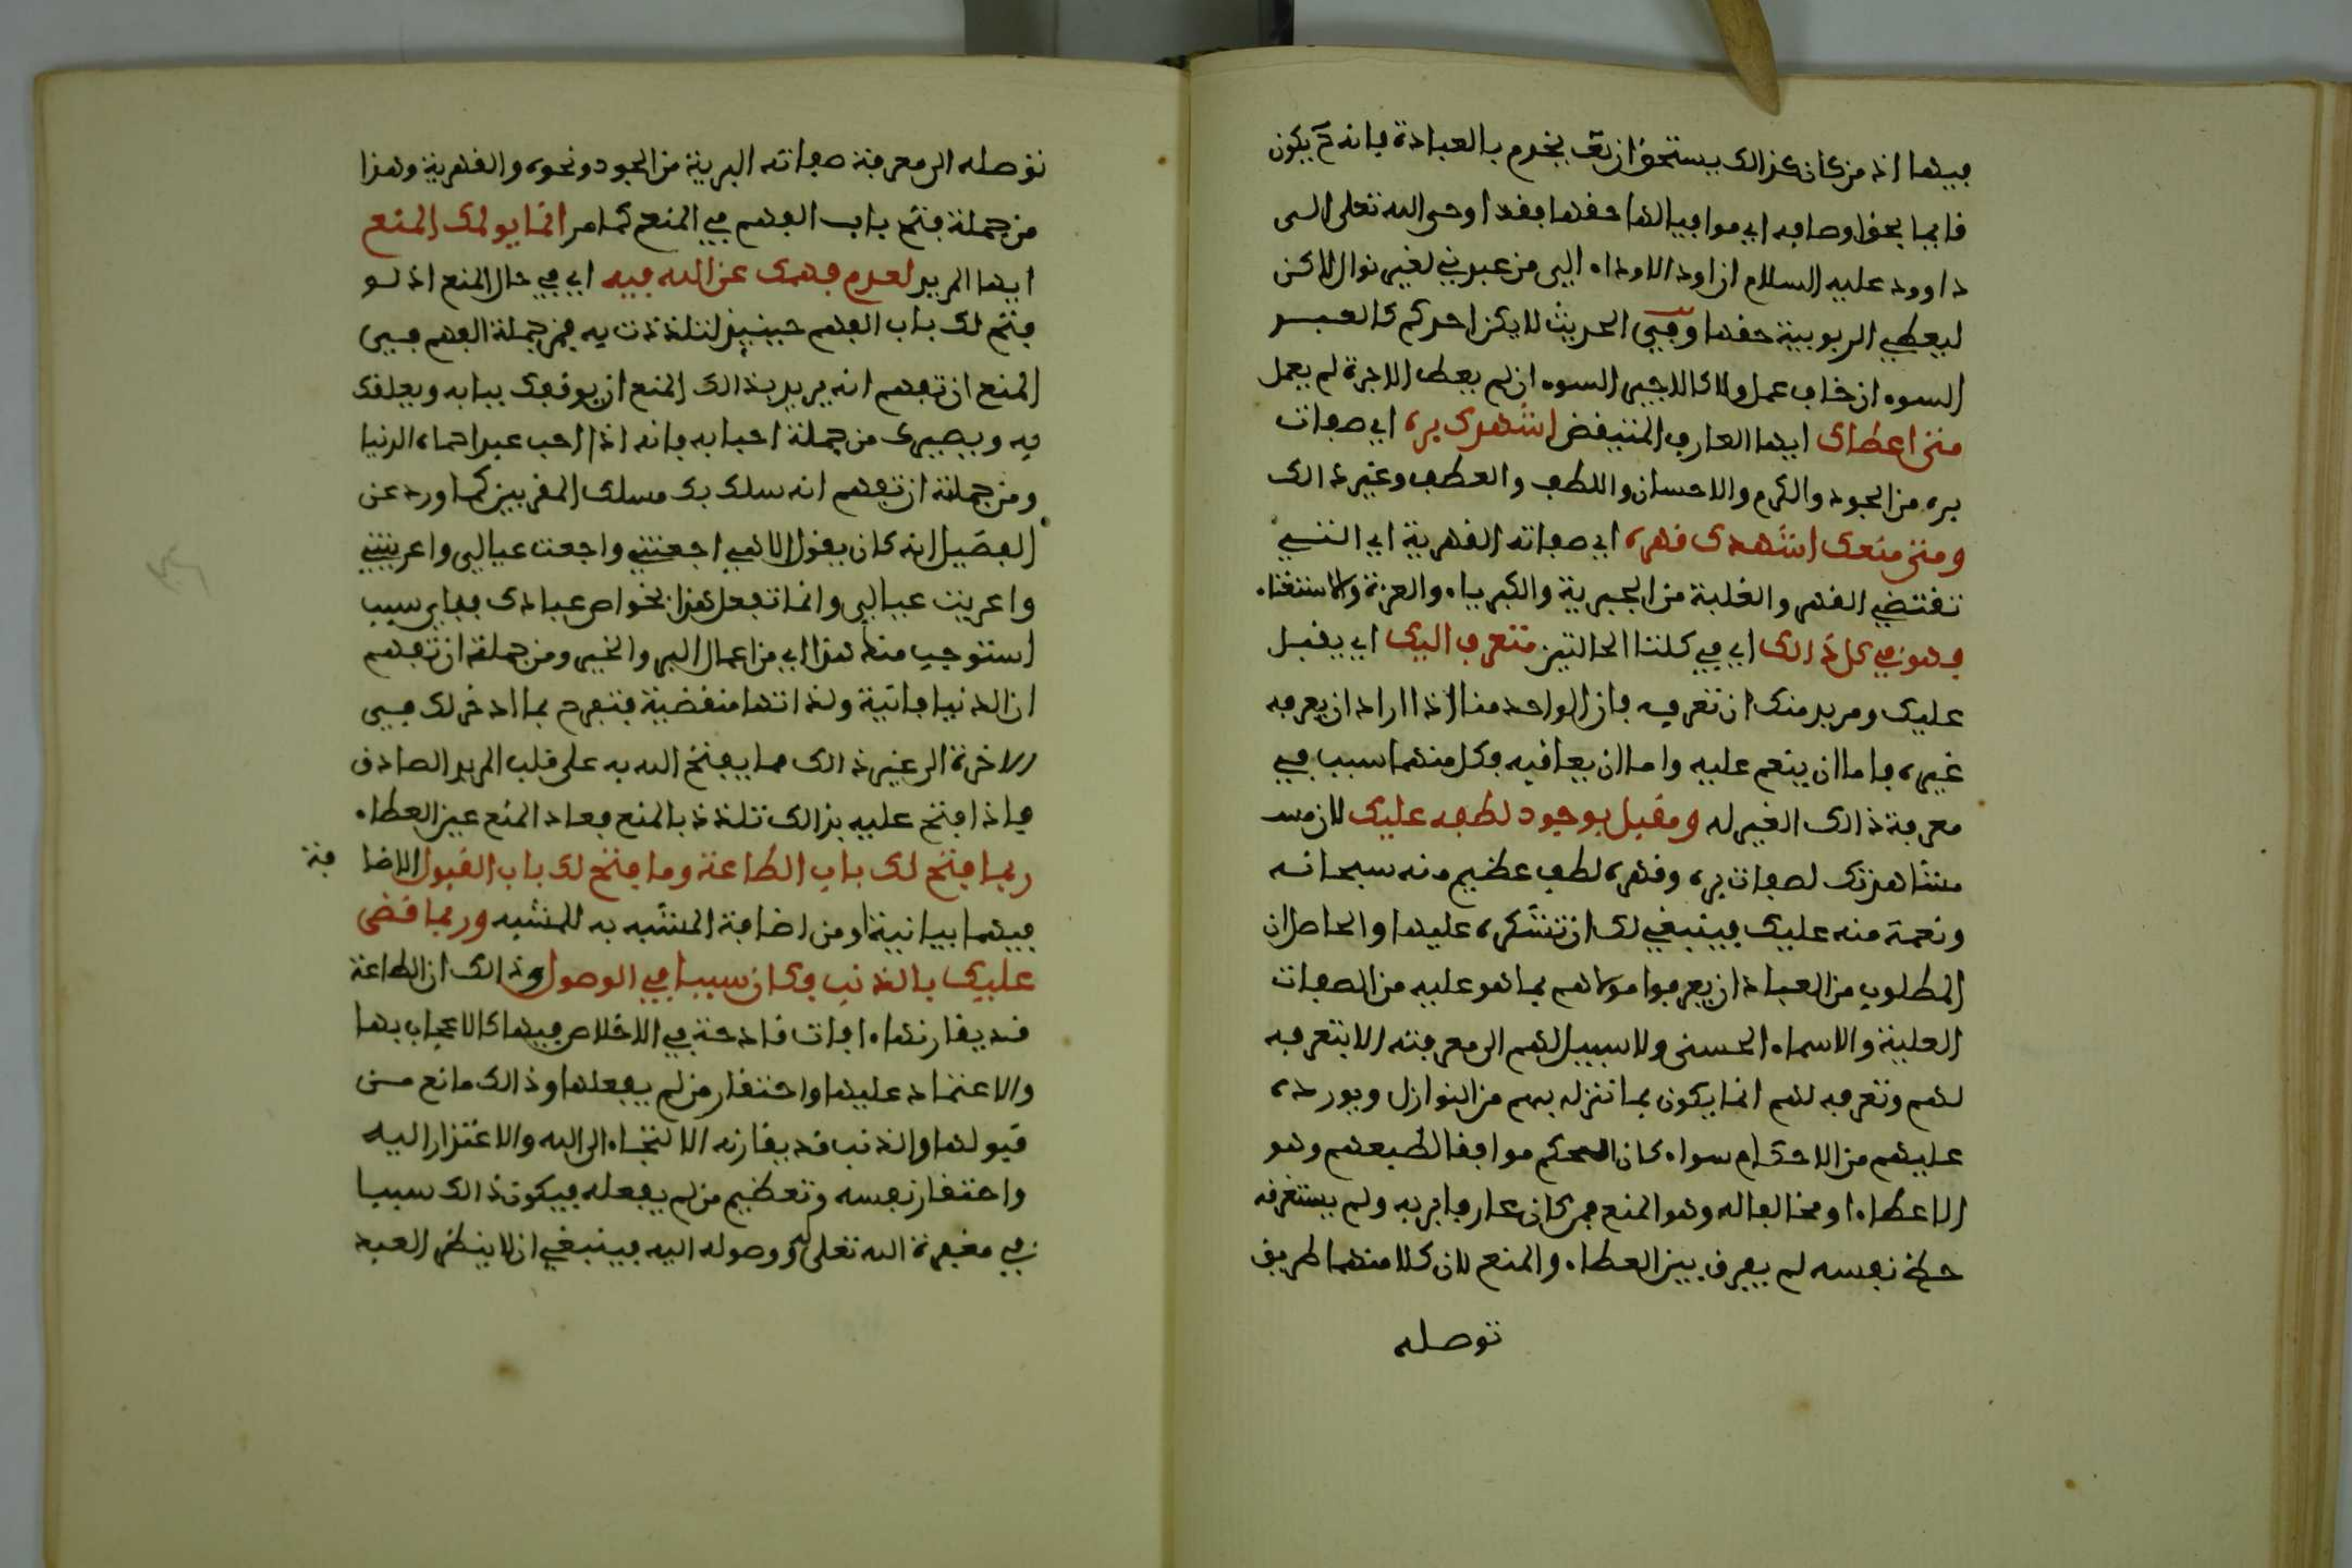 فيها اذ من كان كذالك يستحق ان يخدم بالعبادة فانه ح يكون
قائما بحق اوصافه اي موافيا لها حقها فقد اوحى الله تعلى الى
داوود عليه السلام ان اود الاوداء الي من عبدني لغير نوال لاكن
ليعطي الربوبية حقها وفي الحديث لا يكن احدكم كالعبد
السوء ان خاف عمل ولا كالاجير السوء ان لم يعط الاجرة لم يعمل
متى اعطاك ايها العارف المتيقض اشهدك بره اي صفات
بره من الجود والكرم والاحسان واللطف والعطف وغير ذالك
ومتى منعك اشهدك قهره اي صفاته القهرية اي التي
تقتضي القهر والغلبة من الجبرية والكبرياء والعزة والاستغناء
فهو في كل ذالك اي في كلتا الحالتين متعرف اليك اي يقبل
عليك ومريد منك ان تعرفه فان الواحد منا اذا اراد ان يعرفه
غيره فاما ان ينعم عليه واما ان يعاقبه فكل منهما سبب في
معرفة ذالك الغير له ومقبل بوجود لطفه عليك لان
مشاهدتك لصفات بره وقهره لطف عظيم منه سبحانه
ونعمة منه عليك فينبغي لك ان تشكره عليها والحاصل ان
المطلوب من العباد ان يعرفوا مولاهم بما هو عليه من الصفات
العلية والاسماء الحسنى ولا سبيل لهم الى معرفته الا بتعرفه
لهم وتعرفه لهم انما يكون بما تنزله بهم من النوازل ويورده
عليهم من الاحكام سواء كان الحكم موافقا لطبعهم وهو
الاعطاء او مخالفا له وهو المنع فمن كان عارفا بربه ولم يستغرقه
حظ نفسه لم يفرق بين العطاء والمنع لان كلا منهما طريق
توصله
توصله الى معرفة صفاته البرية من الجود ونحوه والقهرية وهذا
من جملة فتح باب الفهم في المنع كما مر انما يولمك المنع
ايها المريد لعدم فهمك عن الله فيه اي في حال المنع اذ لو
فتح لك باب الفهم حينئذ لتلذذت به فمن جملة الفهم في
المنع ان تفهم انه يريد بذالك المنع ان يوقفك ببابه ويعلقك
به ويصيرك من جملة احبابه فانه اذا احب عبدا حماه الدنيا
ومن جملته ان تفهم انه سلك بك مسلك المقربين كما ورد عن
الفضيل انه كان يقول الاهي اجعتني واجعت عيالي واعريتني
واعريت عيالي وانما تفعل هذا بخواص عبادك فباي سبب
استوجبت منك هذا اي من اعمال البر والخير ومن جملته ان تفهم
ان الدنيا فانية ولذاتها منقضية فتفرح بما ادخر لك في
الاخرة الى غير ذالك مما يفتح الله به على قلب المريد الصادق
فاذا فتح عليه بذالك تلذذ بالمنع فعاد المنع عين العطاء
ربما فتح لك باب الطاعة وما فتح لك باب القبول الاضافة
فيهما بيانية او من اضافة المشبه به للمشبه وربما قضى
عليك بالذنب فكان سببا في الوصول وذالك ان الطاعة
قد يقارنها افات قادحة في الاخلاص فيها كالاعجاب بها
والاعتماد عليها واحتقار من لم يفعلها وذالك مانع من
قبولها والذنب قد يقارنه الالتجاء الى الله والاعتذار اليه
واحتقار نفسه وتعظيم من لم يفعله فيكون ذالك سببا
في مغفرة الله تعلى له ووصوله اليه فينبغي ان لا ينظر العبد